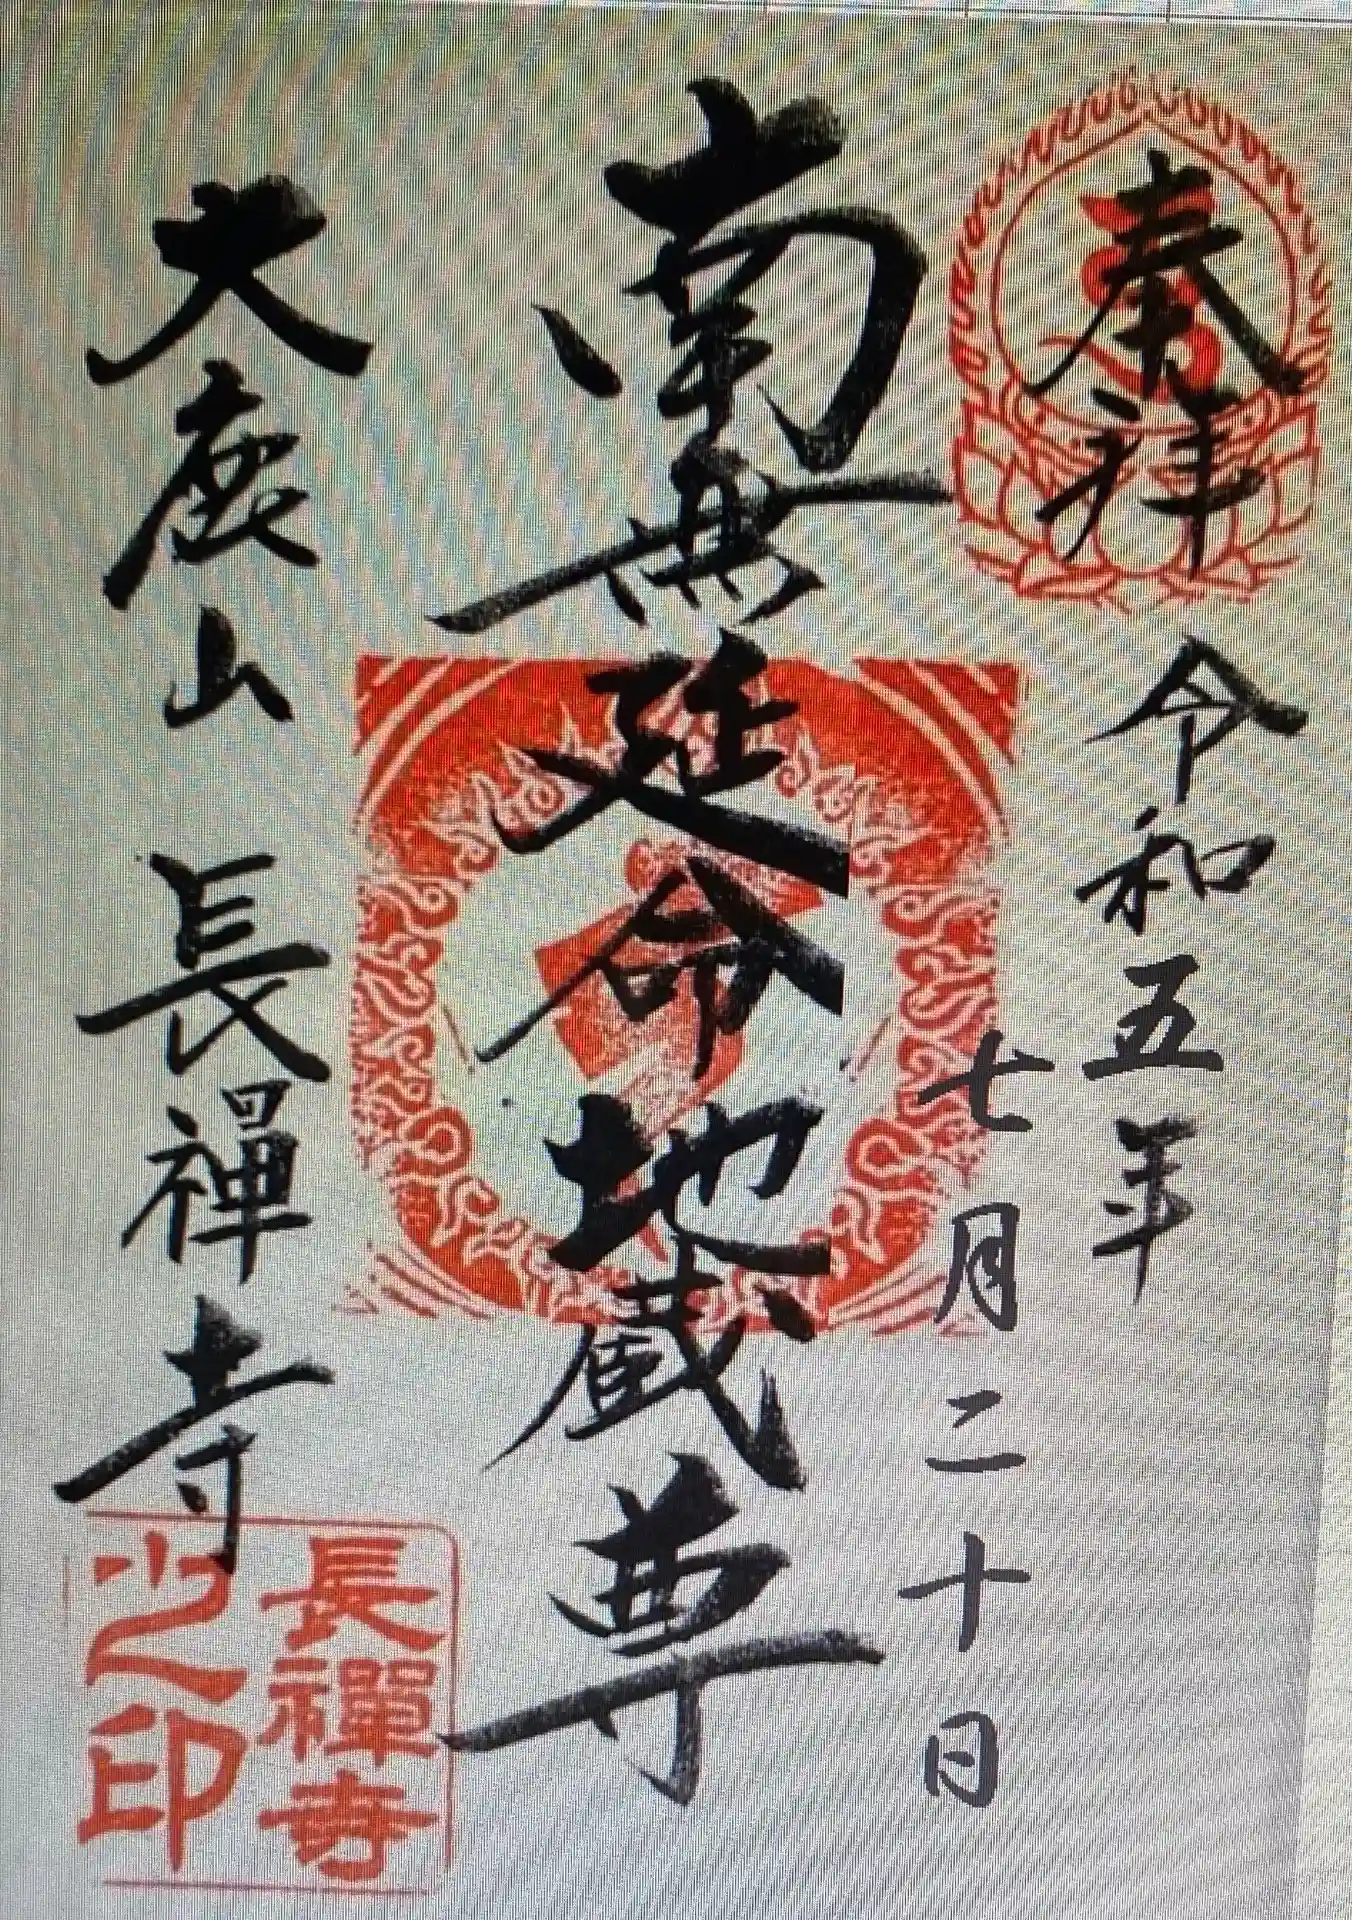 奉拝
令和五年
七月二十日
南無延命地蔵尊
大鹿山 長禪寺
長禪寺
之印